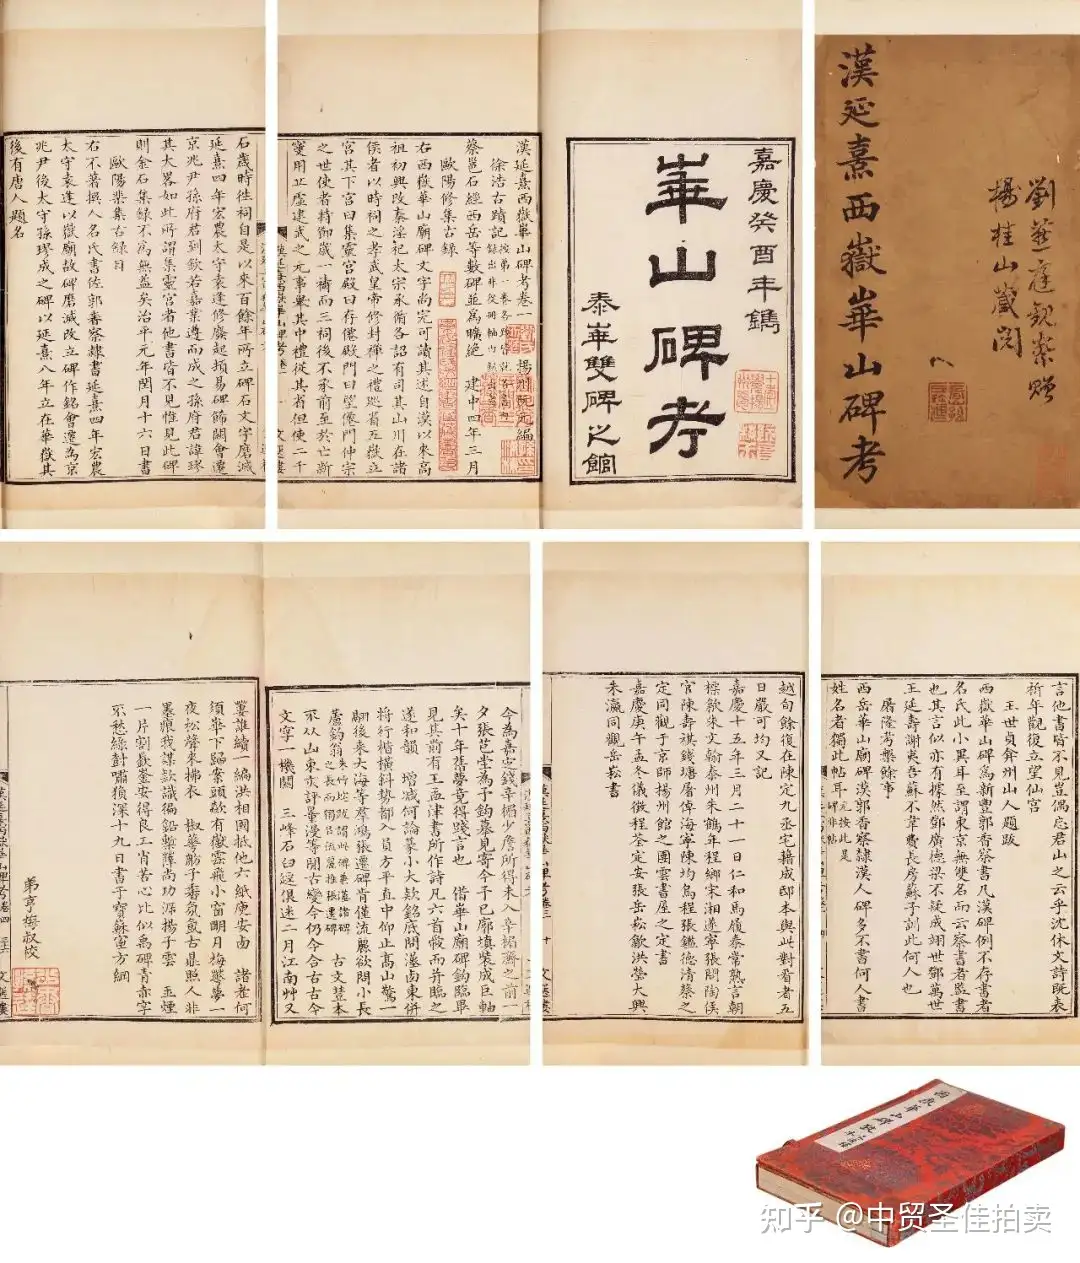 漢延熹西嶽華山碑考
劉燕庭觀察贈
楊桂山藏閱
嘉慶癸酉年鐫
華山碑考
泰華雙碑之館
漢延熹西嶽華山碑考卷一
揚州阮元編
徐浩古蹟記
蔡邕石經西岳等數碑並為曠絕
建中四年三月
歐陽修集古錄
右西嶽華山廟碑文字尚完可讀其述自漢以來高
祖初興改秦淫祀太宗承循各詔有司其山川在諸
侯者以時祠之孝武皇帝修封禪之禮巡省五嶽立
宮其下宮曰集靈宮殿曰存僊殿門曰望僊門仲宗
之世使者持節歲一禱而三祠後不承前至於亡新
寖用丘虛建武之元事舉其中禮從其省但使二千
石歲時往祠自是以來百餘年所立碑石文字磨滅
延熹四年宏農太守袁逢修廢起頓易碑飾闕會遷
京兆尹孫府君到欽若嘉業遵而成之孫府君諱璆
其大畧如此所謂集靈宮者他書皆不見惟見此碑
則余石集錄不為無益矣治平元年閏月十六日書
歐陽棐集古錄目
右不著撰人名氏書佐郭香察隸書延熹四年宏農
太守袁逢以嶽廟故碑磨滅改立碑作銘會遷為京
兆尹後太守孫璆成之碑以延熹八年立在華嶽其
後有唐人題名
言他書皆不見豈偶忘君山之云乎沈休文詩既表
祈年觀復立望仙宮
王世貞弇州山人題跋
西嶽華山碑為新豐郭香察書凡漢碑例不存書者
名氏此小異耳至謂東京無雙名而云察書者監書
也其言似亦有據然鄧廣德梁不疑成翊世鄧萬世
王延壽謝夷吾蘇不韋費長房蘇子訓此何人也
屠隆考槃餘事
西岳華山廟碑漢郭香察隸漢人碑多不書何人書
姓名者獨此帖耳
越旬餘復在陳定九丞宅藉成邸本與此對看者五
日嚴可均又記
嘉慶十五年三月二十一日仁和馬履泰常熟言朝
標歙朱文翰泰州朱鶴年程鄉宋湘遂寧張問陶侯
官陳壽祺錢塘屠倬海寧陳均烏程張鑑德清蔡之
定同觀于京師揚州館之團雲書屋之定書
嘉慶庚午孟冬儀徵程荃定安張岳崧歙洪瑩大興
朱瀛同觀岳崧書
今為嘉定錢辛楣少詹所得未入辛楣齋之前一
夕張芑堂為予鉤摹見寄今干已廓填裝成巨軸
矣十年舊夢竟得踐言也
借華山廟碑鉤臨畢
見其前有王孟津書所作詩凡六首輒而并臨之
遂和韻
增減何論篆小大欸銘底問漢鹵東併
將行楷橫斜勢都入員方平直中仰止高山驚一
翩後來大海等羣鴻張遷碑肯僅流麗欲問小長
蘆釣翁
古文豈本
不从山東亥評量漫等閒古變今仍今合古古今
文字一機關
三峰石臼逕俱迷二月江南艸又
萋誰續一編洪相國抵他六紙庾安西
諸老何
須華下歸案頭欻有嶽雲飛小窗明月梅悽夢一
夜松聲來拂衣
椒蓼舫子香氛氳古鼎照人非
一片割截崟安得良工肯苦心比似禹碑青赤字
不愁綠封嘯猿深十九日書于寶蘇室方綱
弟亨梅叔校
文選樓
知乎 @中贸圣佳拍卖